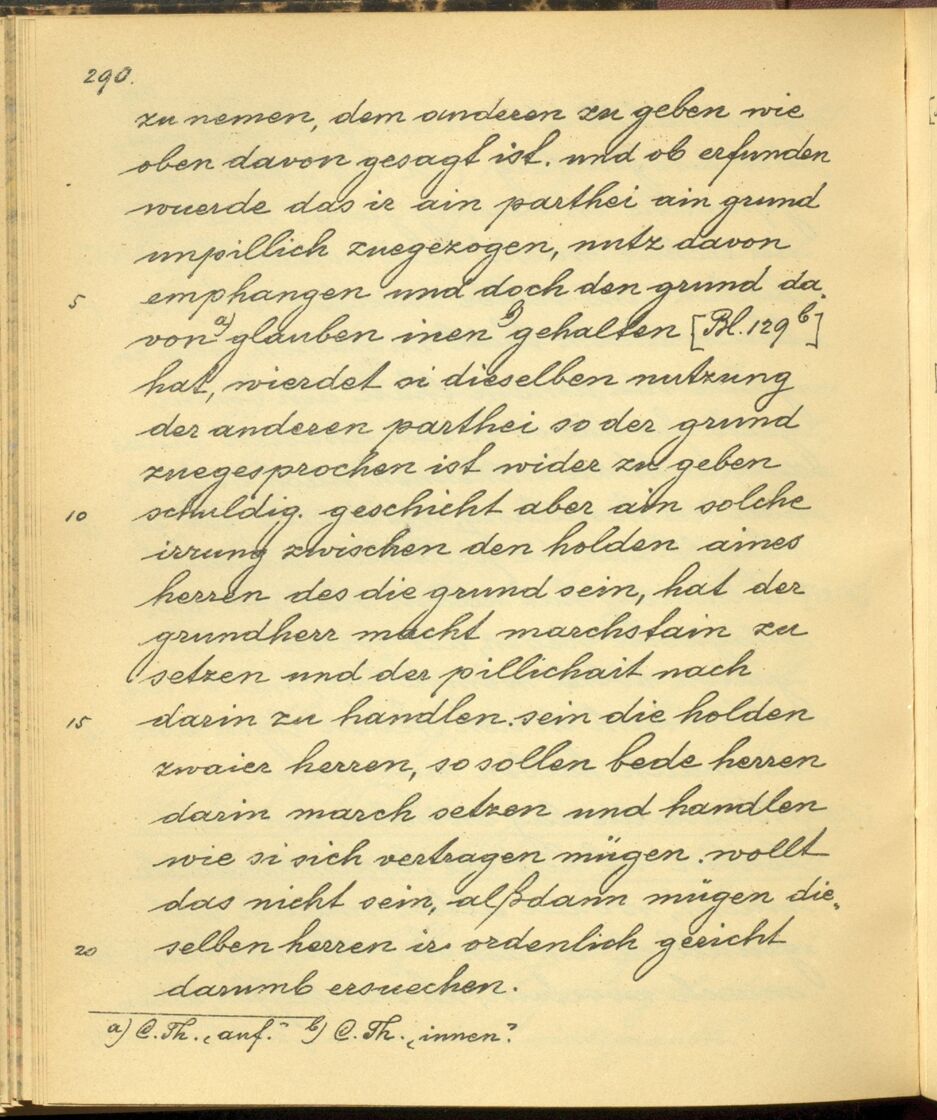 290.
zu nemen, dem anderen zu geben wie
oben davon gesagt ist. und ob erfunden
wuerde das ir ain parthei ain grund
unpillich zuegezogen, nutz davon
5 emphangen und doch den grund da„
von a) glauben inen b) gehalten [Bl. 129 b]
hat, wierdet si dieselben nutzung
der anderen parthei so der grund
zuegesprochen ist wider zu geben
10 schuldig. geschicht aber ain solche
irrung zwischen den holden aines
herren des die grund sein, hat der
grundherr macht marchstain zu
setzen und der pillichait nach
15 darin zu handlen. sein die holden
zwaier herren, so sollen bede herren
darin march setzen und handlen
wie si sich vertragen mügen. wollt
das nicht sein, alßdann mügen die„
20 selben herren ir ordenlich gericht
darumb ersuechen.
a) C. Th. „auf.“ b) C. Th. „innen“